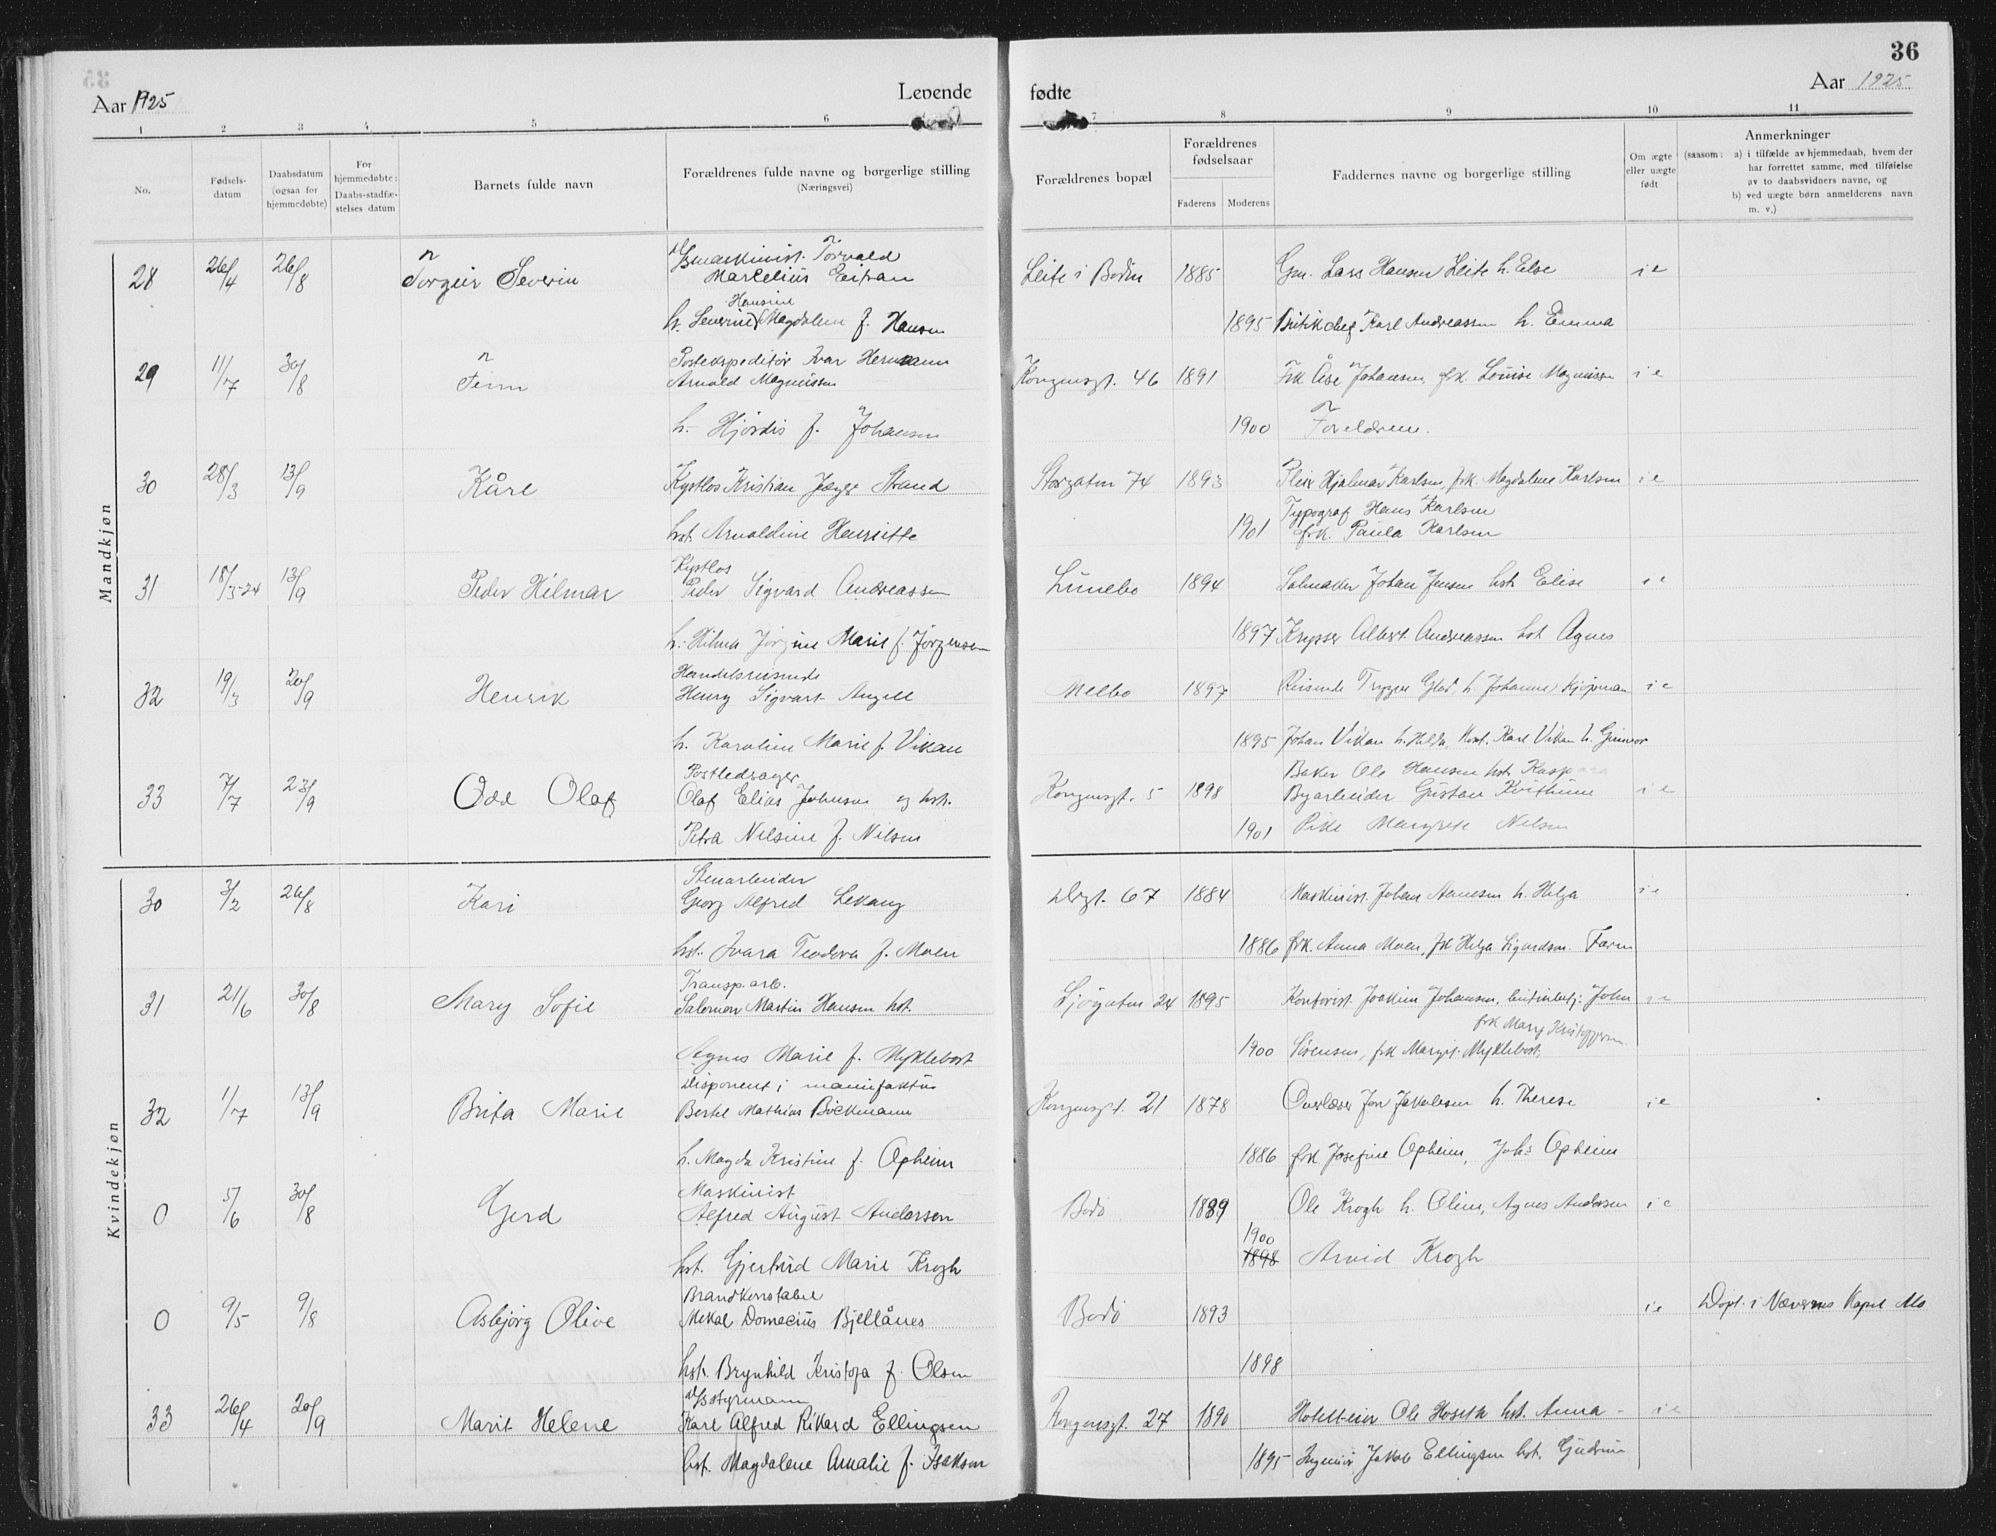 36
Aar 1925
Levende
fødte
Aar 1925
1 2 3 4 5 6 7 8 9 10 11
No.
Fødsels-
datum
Daabsdatum
(ogsaa for
hjemmedøbte)
For
hjemmedøbte:
Daabs-stadfæ-
stelses datum
Barnets fulde navn
Forældrenes fulde navne og borgerlige stilling
(Næringsvei)
Forældrenes bopæl
Forældrenes
fødselsaar
Faderens Moderens
Faddernes navne og borgerlige stilling
Om ægte
eller uægte
født
Anmerkninger
(saasom: a) i tilfælde av hjemmedaab, hvem der
har forrettet samme, med tilføielse
av to daabsvidners navne, og
b) ved uægte børn anmelderens navn
m. v.)
Mandkjøn
28 26/4 26/8 Torgeir Severin
Torvald
Marcelius Eitran
Hansine
h. Severine Magdalene f. Hansen
Leite i Bodin 1885 Gm. Lars Hansen Leite h. Else ie
1895 Butikchef Karl Andreassen h. Emma
29 11/7 30/8 Finn
Postekspeditør Ivar Hermann
Arnold Magnussen
h. Hjørdis f. Johansen
Kongensgt. 46 1891 Frk Åse Johansen, frk. Louise Magnussen ie
1900 Foreldrene.
30 28/3 13/9 Kåre
Kystlos Kristian Jæger Strand
hst. Arnoldine Henriette
Storgaten 74 1893 Hjalmar Karlsen, frk. Magdalene Karlsen ie
Typograf Hans Karlsen
1901 frk. Paula Karlsen
31 18/3-24 13/9 Peder Hilmar
Kystlos
Peder Sigvard Andreassen
h. Hilma Jørgine Marie f. Jørgensen
Lunebo 1894 Salmaker Johan Jensen hst Elise ie
1897 Albert Andreassen hst Agnes
32 19/3 20/9 Henrik
Handelsreisende
Henry Sigvart Angell
h. Karoline Marie f. Vikan
Melbo 1897 Reisende Trygve h. Johanne ie
1895 Johan Vikan h. Hilda, Karl Vikan h. Gunvor
33 7/7 23/9 Odd Olaf
Postledsager
Olaf Elias Johnsen og hst.
Petra Nilsine f. Nilsen
Kongensgt. 5 1898
Baker Ole Hansen hst
Byarbeider Gustav ie
1901 Pike Margrete Nilsen
Kvindekjøn
30 3/2 26/8 Kari
Stenarbeider
Georg Alfred Lekang
hst. Ivara Teodora f. Moen
Drgt. 67 1884 Maskinist Johan h. Helga ie
1886 frk. Anna Moen, frk Helga Sigurdson. Farm
31 21/6 30/8 Mary Sofie
Transp.arb.
Salomon Martin Hansen hst.
Agnes Marie f. Myklebost
Sjøgaten 24 1895 Kontorist Joakim Johansen, John ie
frk Mary Kristoffersen
1900 Sørensen, frk Margit Myklebost.
32 1/7 13/9 Brita Marie
Disponent i manufaktur
Bertel Mathias Böckmann
h. Magda Kristine f. Opheim
Kongensgt. 21 1878 Overlærer Jon Jakobsen h. Therese ie
1886 frk Josefine Opheim, Johs Opheim
0 5/6 30/8 Gerd
Maskinist
Alfred August Andersen
hst. Gjertrud Marie Krogh
Bodø 1889 Ole Krogh h. Oline, Agnes Andersen ie
1900
1898 Arvid Krogh
0 9/5 9/8 Asbjørg Olive
Brandkonstabel
Mikal Domecius Bjellånes
hst. Brynhild Kristofa f. Olsen
Bodø 1893 ie Døpt i Nævernes Kapel Mo
1898
33 26/4 20/9 Marit Helene
D/Sstyrmann
Karl Alfred Rikard Ellingsen
hst. Magdalene Amalie f. Isaksen
Kongensgt. 27 1890 Hotelleier Ole hst. Anna ie
1895 Ingeniør Jakob Ellingsen hst. Gudrun